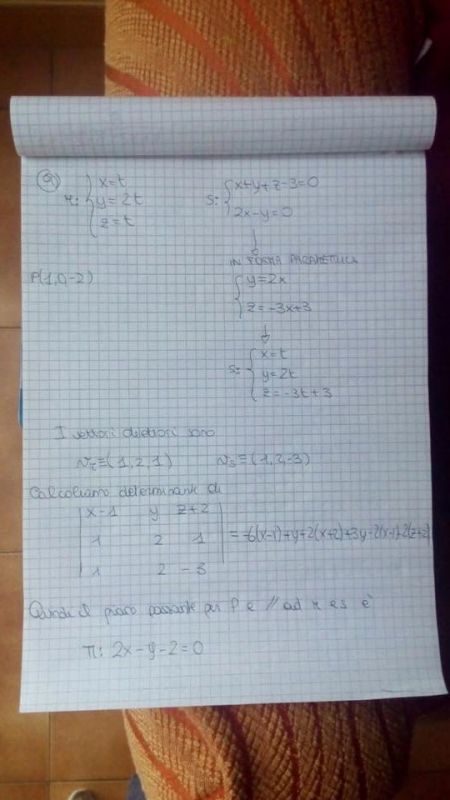 9)
r: { x=t
y=2t
z=t
s: { x+y+z-3=0
2x-y=0
↓
IN FORMA PARAMETRICA
P(1,0-2)
{ y=2x
z=-3x+3
↓
s: { x=t
y=2t
z=-3t+3
I vettori direttori sono
Vr=(1,2,1) Vs=(1,2,-3)
Calcoliamo determinante di
| x-1 y z+2 |
| 1 2 1 | = -6(x-1)+y+2(x+2)+3y-2(x-1)-2(z+2)
| 1 2 -3 |
Quindi il piano passante per P e // ad r e s è
π: 2x-y-2=0